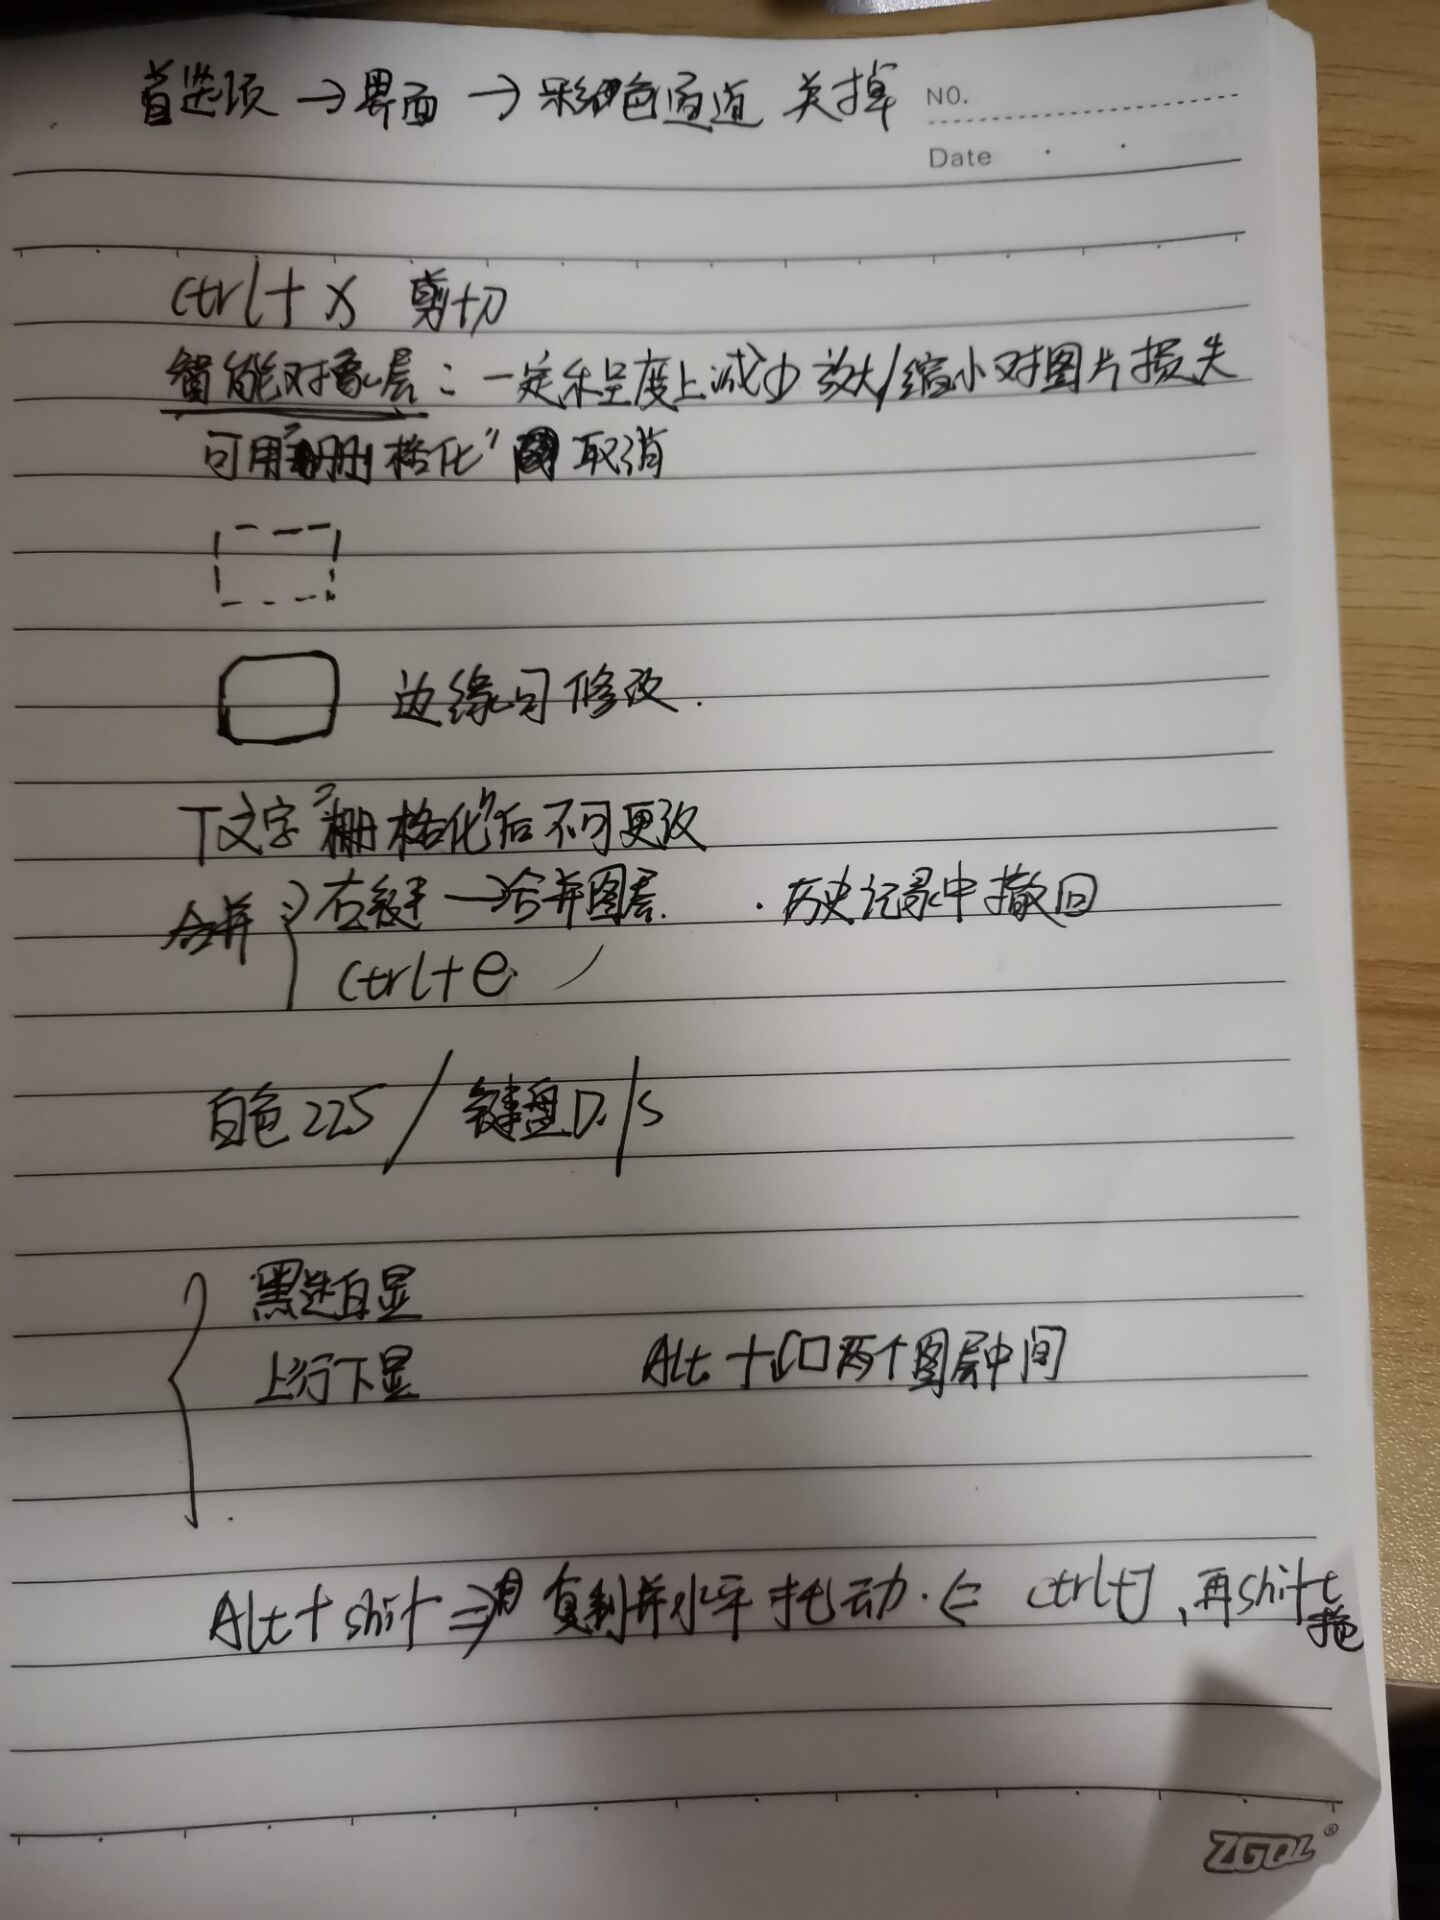 首选项→界面→彩色通道 关掉
NO.
Date
ctrl+x 剪切
智能对象层：一定程度上减少放大/缩小对图片损失
可用"栅格化" 取消
边缘可修改.
T文字"栅格化"后不可更改
合并 右键→合并图层. ·历史记录中撤回
ctrl+e
白色225 / 键盘D./s
黑选白显
上行下显 Alt+ 两个图层中间
Alt+shift⇒ 复制并水平拖动.⇐ ctrl+J,再shift拖
ZGQL®